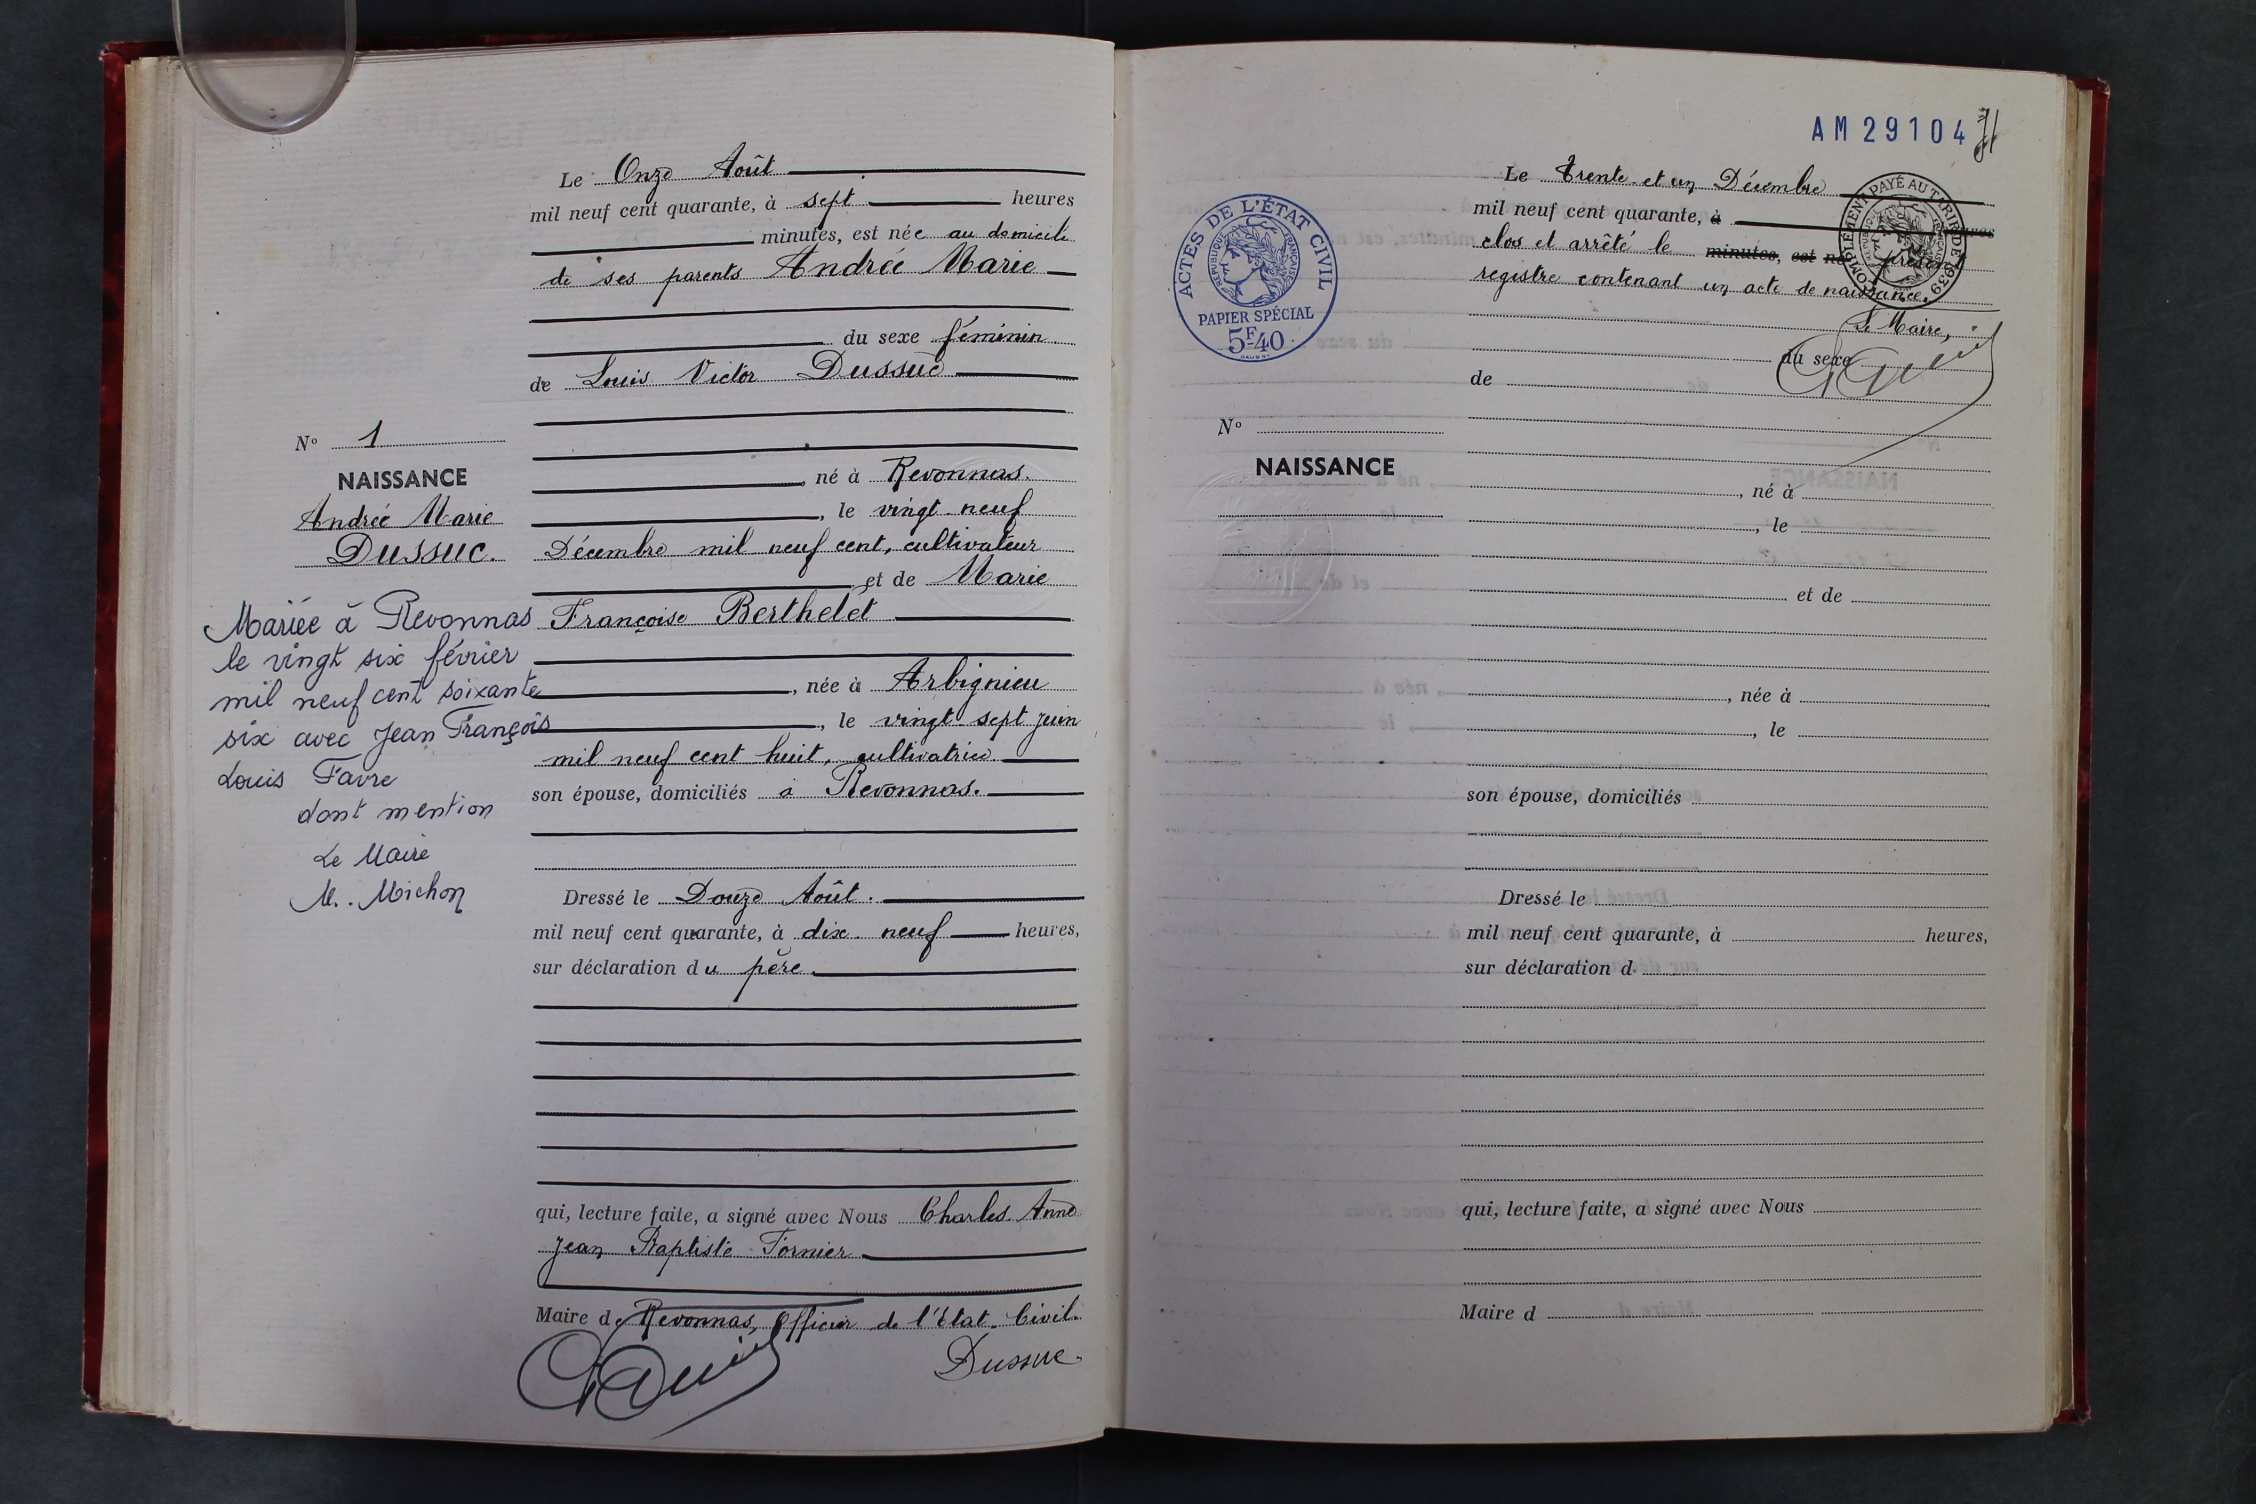 Le Onze Août
mil neuf cent quarante, à sept heures
minutes, est née au domicile
de ses parents Andrée Marie
du sexe féminin
de Louis Victor Dussuc
N° 1
NAISSANCE
Andrée Marie
Dussuc.
né à Revonnas.
, le vingt-neuf
Décembre mil neuf cent, cultivateur
et de Marie
Françoise Berthelet
, née à Arbignieu
, le vingt-sept Juin
mil neuf cent huit, cultivatrice
son épouse, domiciliés à Revonnas.
Mariée à Revonnas
le vingt six février
mil neuf cent soixante
six avec Jean François
Louis Favre
dont mention
Le Maire
M. Michon
Dressé le Douze Août.
mil neuf cent quarante, à dix-neuf heures,
sur déclaration du père
qui, lecture faite, a signé avec Nous Charles Anne
Jean Baptiste Fornier
Maire de Revonnas, Officier de l'Etat-Civil.
Dussuc
AM29104
ACTES DE L'ÉTAT CIVIL
RÉPUBLIQUE FRANÇAISE
PAPIER SPÉCIAL
5F40
COMPLÉMENT PAYÉ AU TARIF DE 1939
Le Trente-et un Décembre
mil neuf cent quarante, à
clos et arrêté le minutes, est né présent
registre contenant un acte de naissance.
Le Maire,
du sexe
de
N°
NAISSANCE
, né à
, le
et de
, née à
, le
son épouse, domiciliés
Dressé le
mil neuf cent quarante, à heures,
sur déclaration d
qui, lecture faite, a signé avec Nous
Maire d